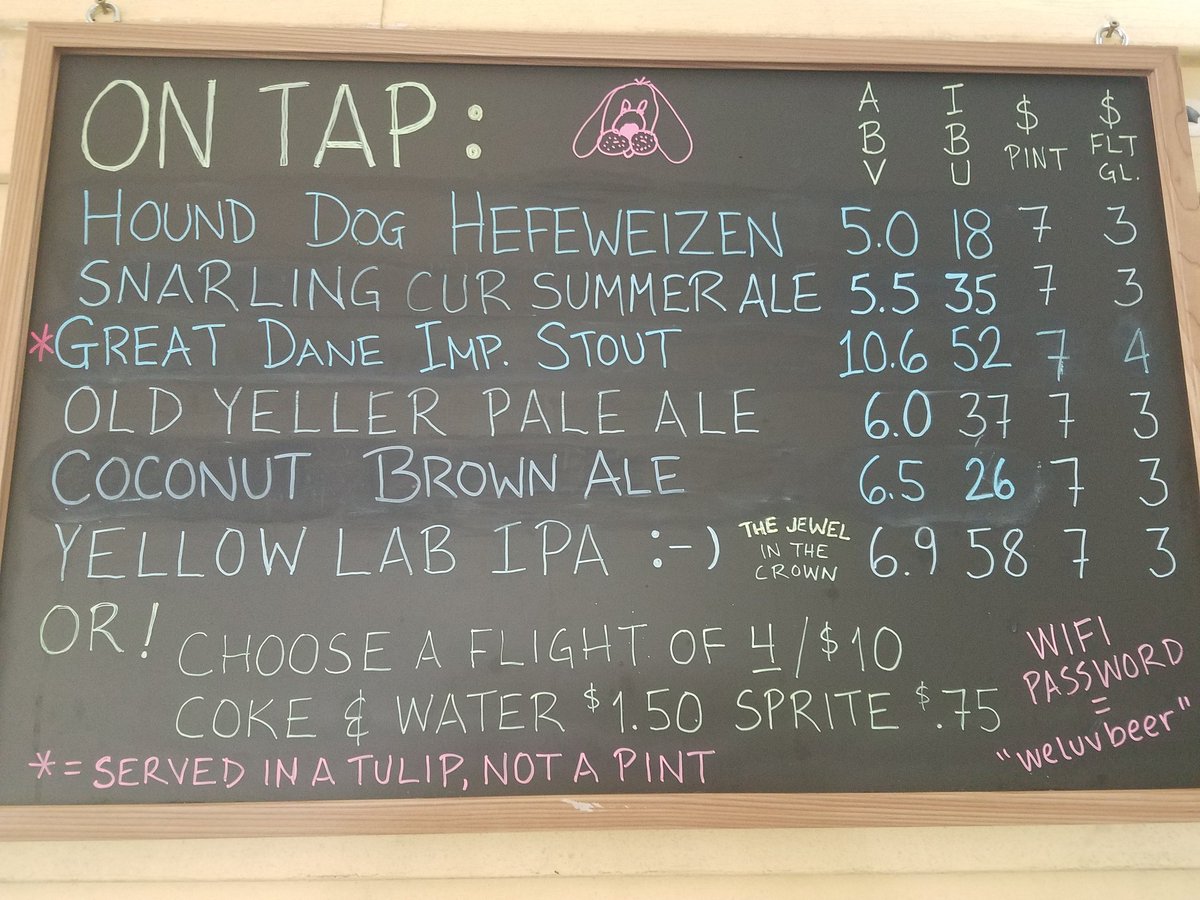 ON TAP: ABV IBU $ PINT $ FLT GL.
HOUND DOG HEFEWEIZEN 5.0 18 7 3
SNARLING CUR SUMMER ALE 5.5 35 7 3
*GREAT DANE IMP. STOUT 10.6 52 7 4
OLD YELLER PALE ALE 6.0 37 7 3
COCONUT BROWN ALE 6.5 26 7 3
YELLOW LAB IPA :-) THE JEWEL IN THE CROWN 6.9 58 7 3
OR! CHOOSE A FLIGHT OF 4/$10
COKE & WATER $1.50 SPRITE $.75
*=SERVED IN A TULIP, NOT A PINT
WIFI
PASSWORD
=
"weluvbeer"